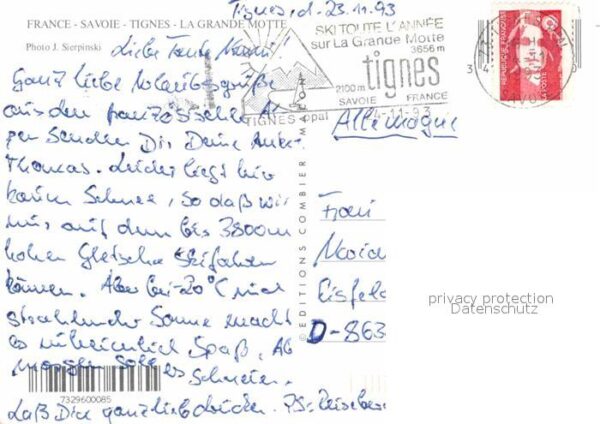 Tignes, d. 23.11.93
FRANCE - SAVOIE - TIGNES - LA GRANDE MOTTE
Photo J. Sierpinski
Liebe Tante
SKI TOUTE L'ANNÉE
sur La Grande Motte
3656 m
tignes
2100 m
SAVOIE FRANCE
TIGNES ppal
-11-93
Ganz liebe Urlaubsgrüße
aus den französischen
pen senden Dir Deine
Thomas. Leider liegt hier
kaum Schnee, so daß wir
nur auf dem bis 3800m
hohen Gletscher Skifahren
können. Aber bei -20°C und
strahlender Sonne macht
es unheimlich Spaß. Ab
morgen soll es schneien.
Laß Dich ganz lieb drücken. PS:
Allemagne
Frau
Eisfeld
D-863
© EDITIONS COMBIER MACON
7329600085
privacy protection
Datenschutz